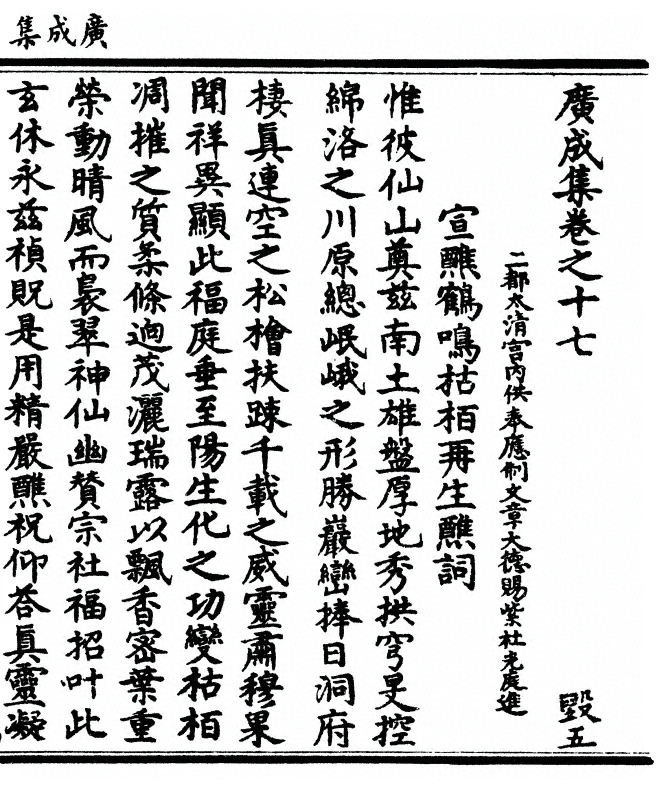 廣成集
廣成集卷之十七 毀五
二都太清宮內供奉應制文章大德賜紫杜光庭進
宣醮鶴鳴枯柏再生醮詞
惟彼仙山奠茲南土雄盤厚地秀拱穹旻控
綿洛之川原總岷峨之形勝巖巒捧日洞府
棲真連空之松檜扶踈千載之威靈肅穆果
聞祥異顯此福庭垂至陽生化之功變枯柏
凋摧之質柔條迥茂灑瑞露以飄香密葉重
榮動晴風而裊翠神仙幽贊宗社福招叶此
玄休永茲禎貺是用精嚴醮祝仰荅真靈凝